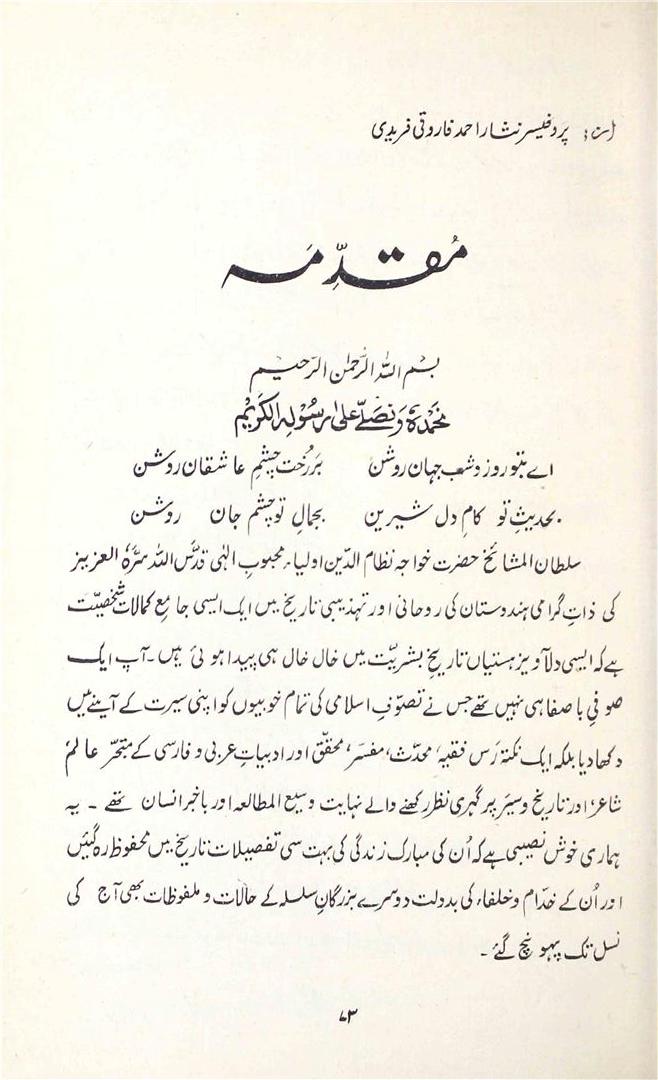 از: پروفیسر نثار احمد فاروقی فریدی
مُقدِّمَہ
بِسْمِ اللہِ الرَّحمٰنِ الرَّحیْم
نَحْمَدُہٗ وَنُصَلِّی عَلیٰ رَسُوْلِہِ الکَرِیْم
اے بتو روز و شب جہان روشن بررُخت چشمِ عاشقان روشن
بحدیثِ تو کامِ دل شیرین بجمالِ تو چشم جان روشن
سلطان المشائخ حضرت خواجہ نظام الدّین اولیاء محبوبِ الٰہی قدّس اللہ سرّہٗ العزیز
کی ذاتِ گرامی ہندوستان کی روحانی اور تہذیبی تاریخ میں ایک ایسی جامعِ کمالات شخصیّت
ہے کہ ایسی دلآویز ہستیاں تاریخِ بشریّت میں خال خال ہی پیدا ہوئی ہیں۔ آپ ایک
صوفیِ باصفا ہی نہیں تھے جس نے تصوّفِ اسلامی کی تمام خوبیوں کو اپنی سیرت کے آئینے میں
دکھادیا بلکہ ایک نکتہ رَس فقیہ، محدّث، مفسر، محقّق اور ادبیاتِ عربی و فارسی کے متبحّر عالم،
شاعر، اور تاریخ و سیَر پر گہری نظر رکھنے والے نہایت وسیع المطالعہ اور باخبر انسان تھے ۔ یہ
ہماری خوش نصیبی ہے کہ اُن کی مبارک زندگی کی بہت سی تفصیلات تاریخ میں محفوظ رہ گئیں
اور اُن کے خدّام و خلفاء کی بدولت دوسرے بزرگانِ سلسلہ کے حالات و ملفوظات بھی آج کی
نسل تک پہونچ گئے ۔
۷۳